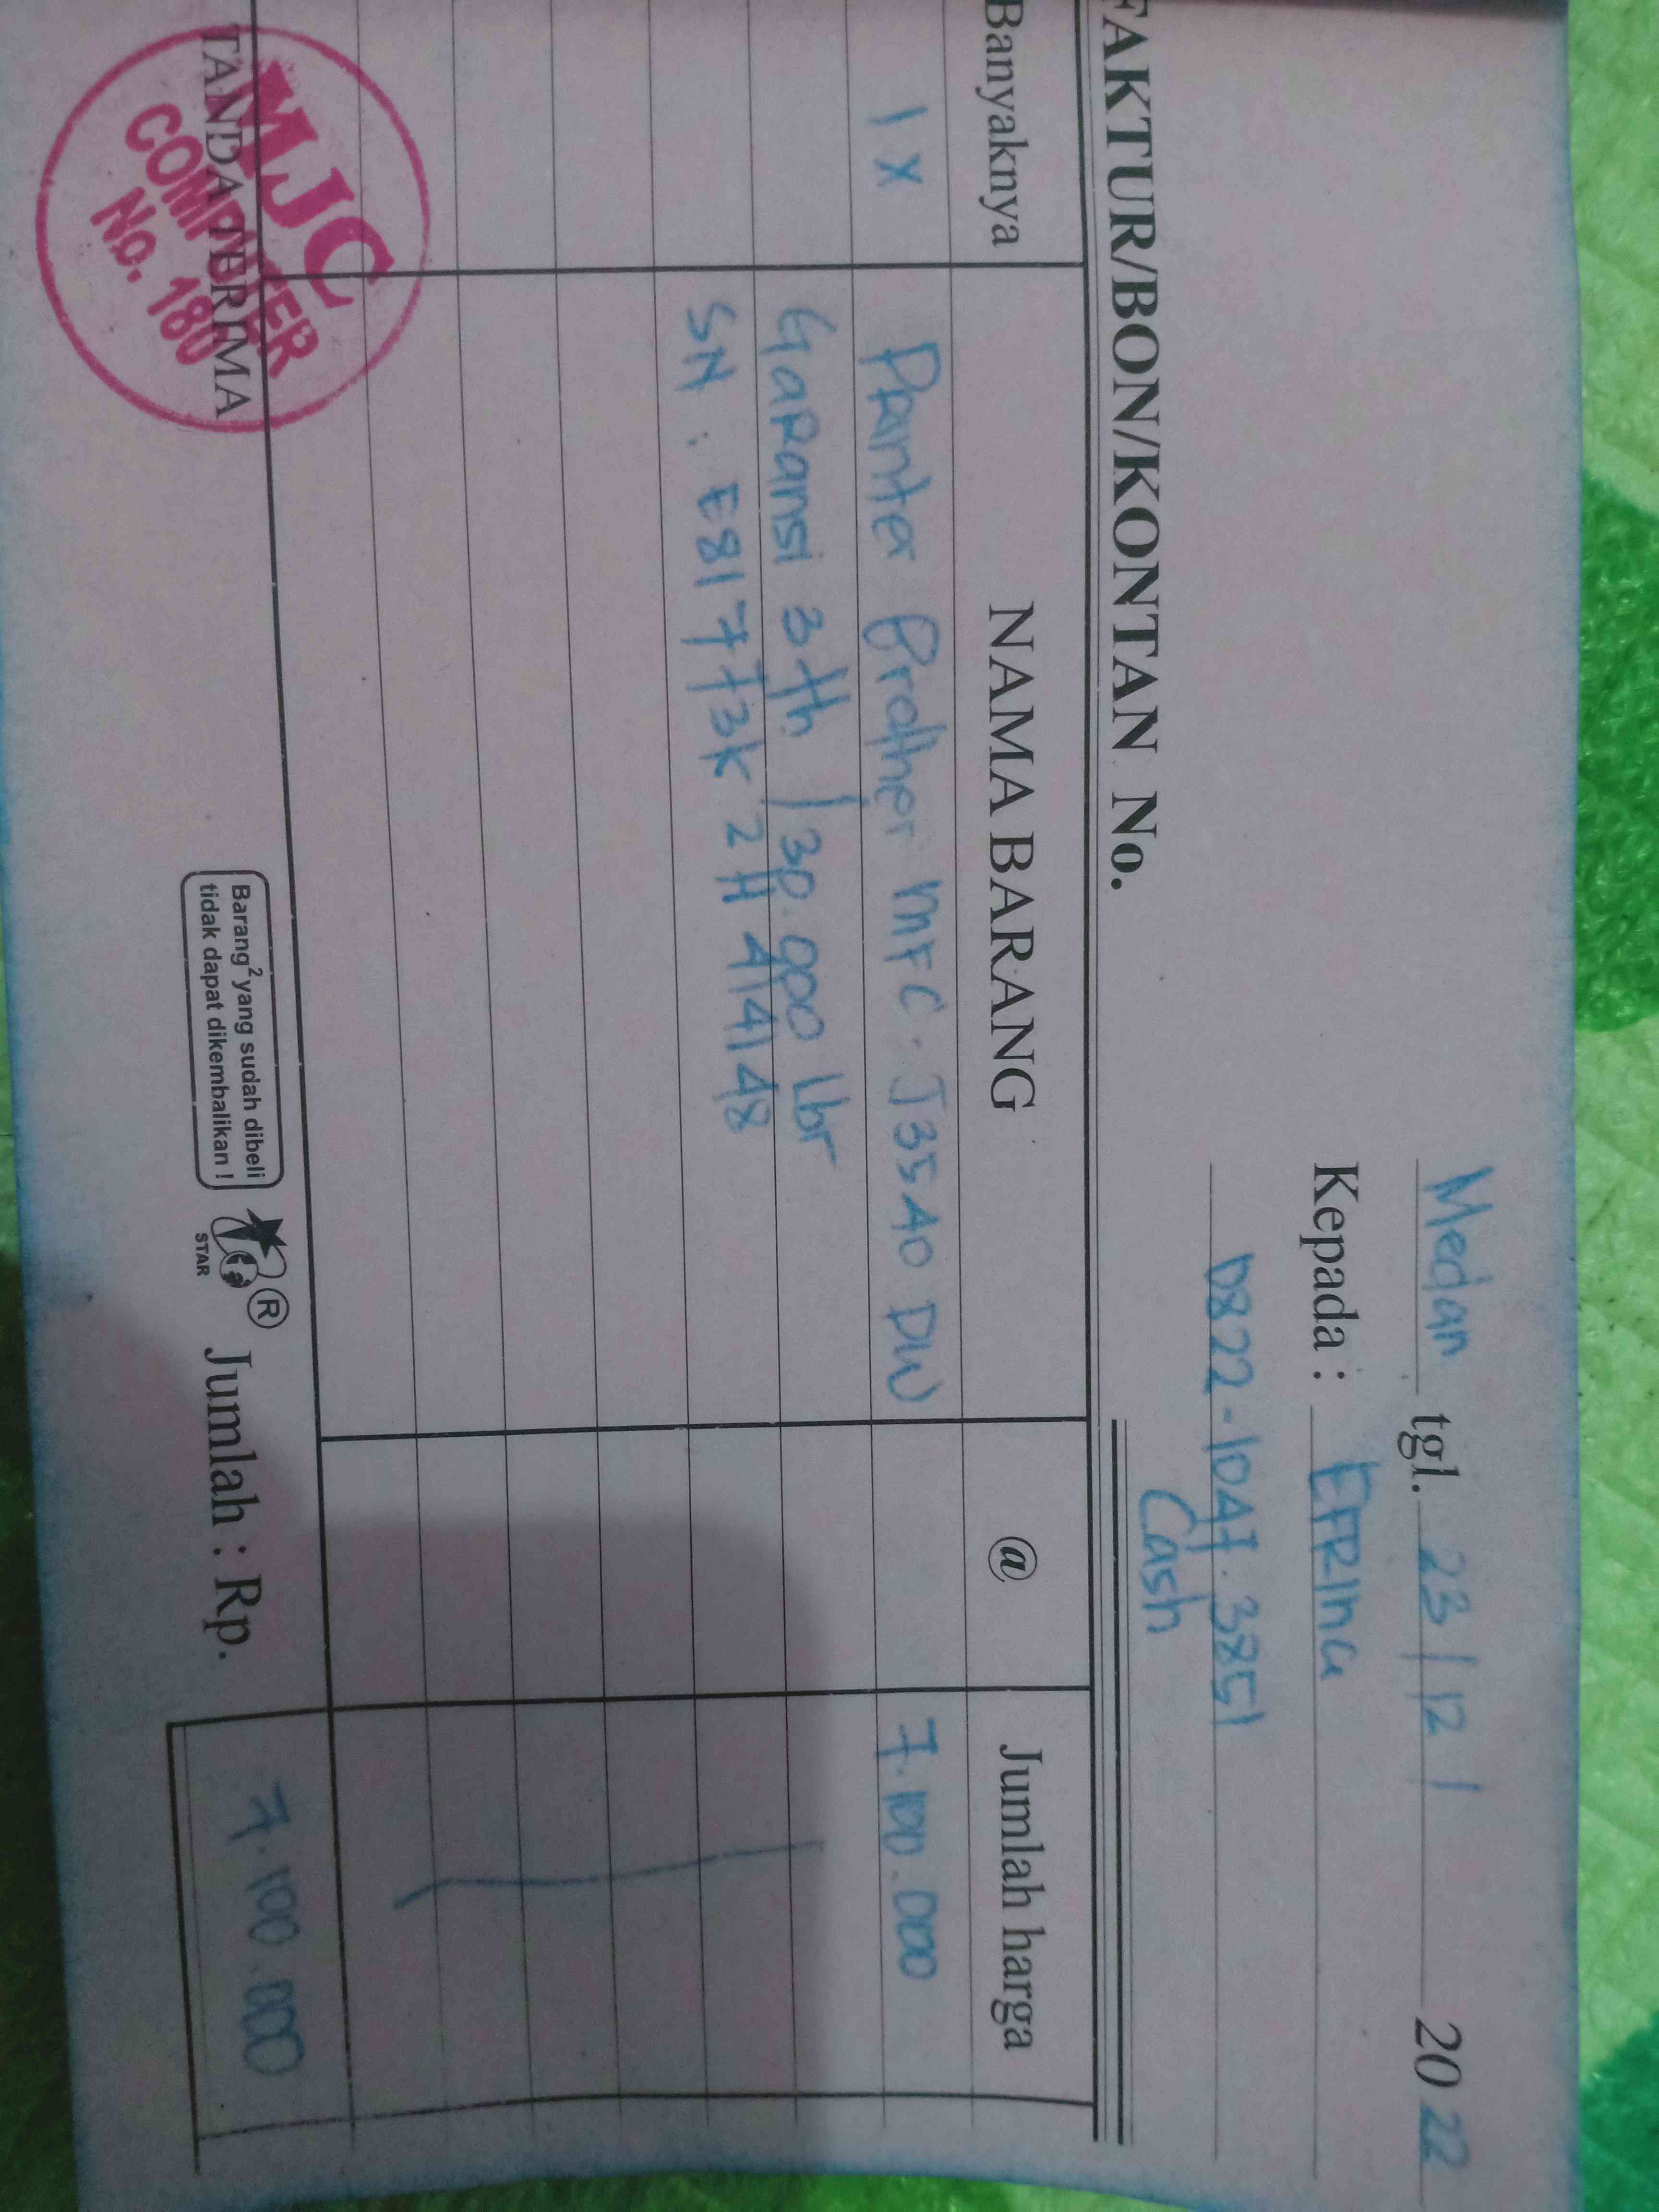 Medan tgl. 23/12/ 2022
Kepada : EFRINA
0822-1047.3851
Cash
FAKTUR/BON/KONTAN No.
Banyaknya NAMA BARANG @ Jumlah harga
1 X Printer Brother MFC-J3540 DW 7.100.000
Garansi 3 th / 30.000 lbr
SN : E81773K2H414148
TANDA TERIMA
MJC
COMPUTER
No. 180
Barang² yang sudah dibeli
tidak dapat dikembalikan !
STAR
®
Jumlah : Rp. 7.100.000